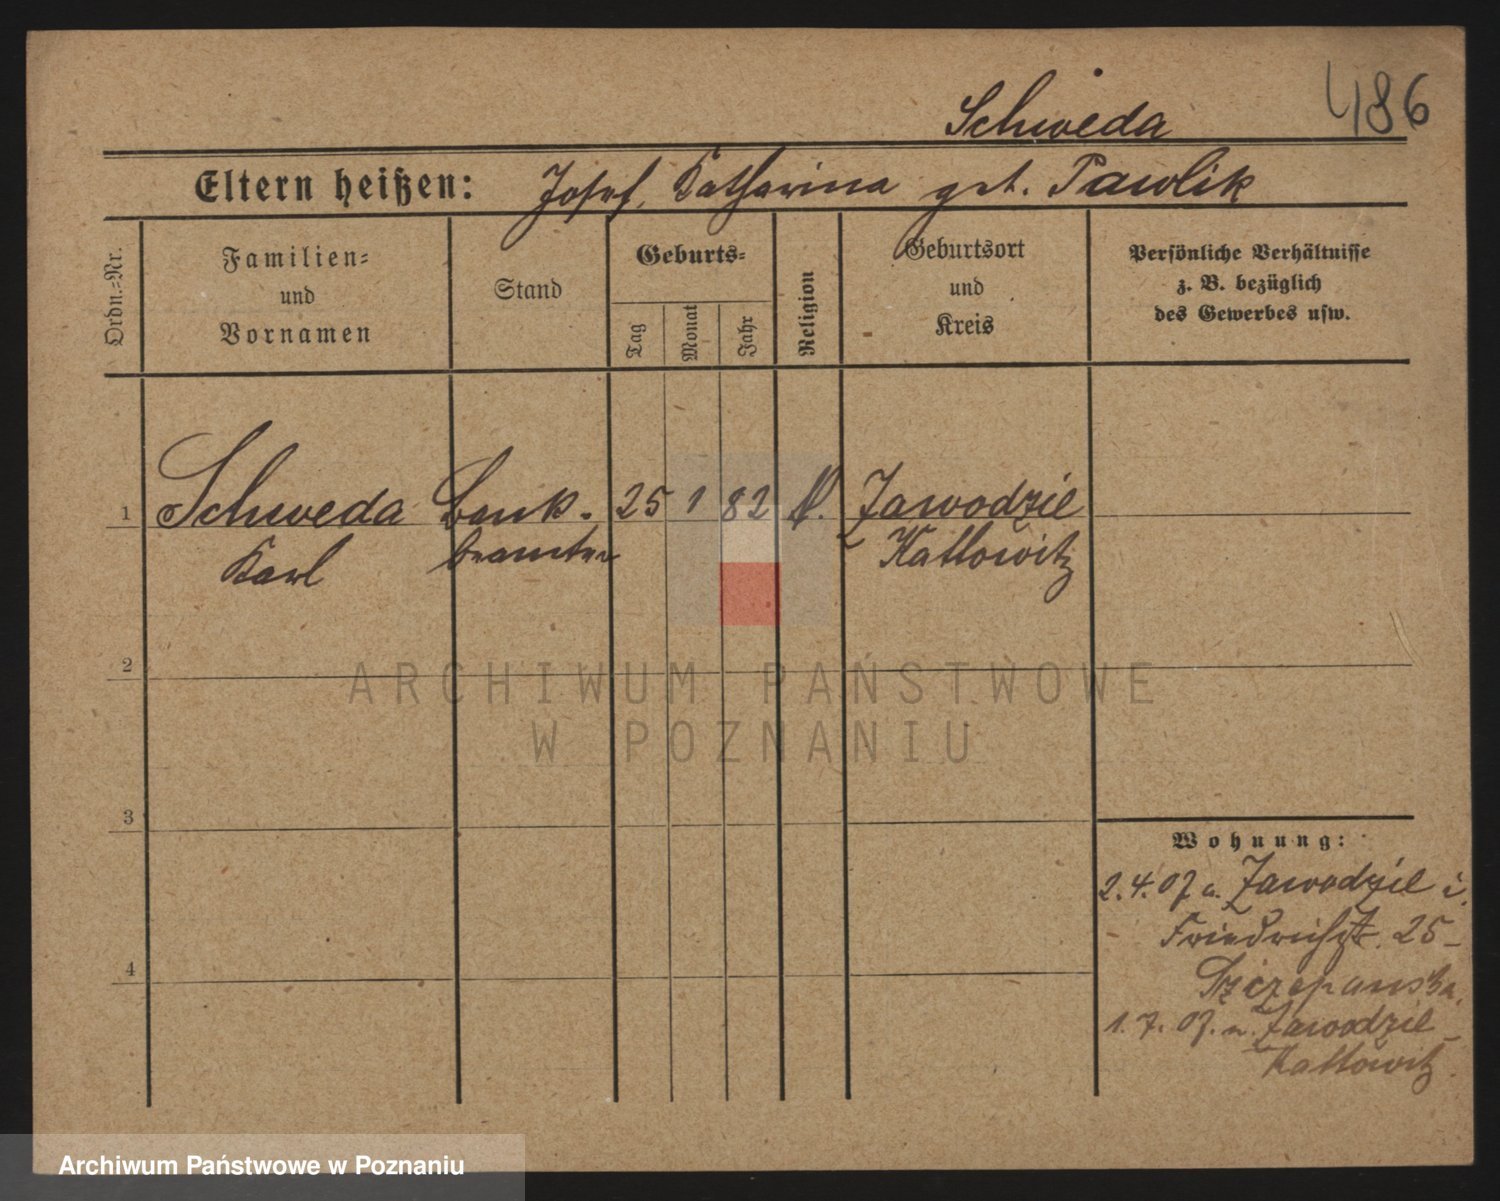 486
Schweda
Eltern heißen: Josef, Katharina geb. Pawlik
Ordn.-Nr.
Familien-
und
Vornamen
Stand
Geburts-
Tag
Monat
Jahr
Religion
Geburtsort
und
Kreis
Persönliche Verhältnisse
z. B. bezüglich
des Gewerbes usw.
1 Schweda Bank- 25 1 82 k. Zawodzie
Karl beamter Kattowitz
2
ARCHIWUM PAŃSTWOWE
W POZNANIU
3
Wohnung:
2.4.07 a. Zawodzie i.
Friedrichstr. 25-
Szczepanska.
4
1.7.07. n. Zawodzie
Kattowitz.
Archiwum Państwowe w Poznaniu